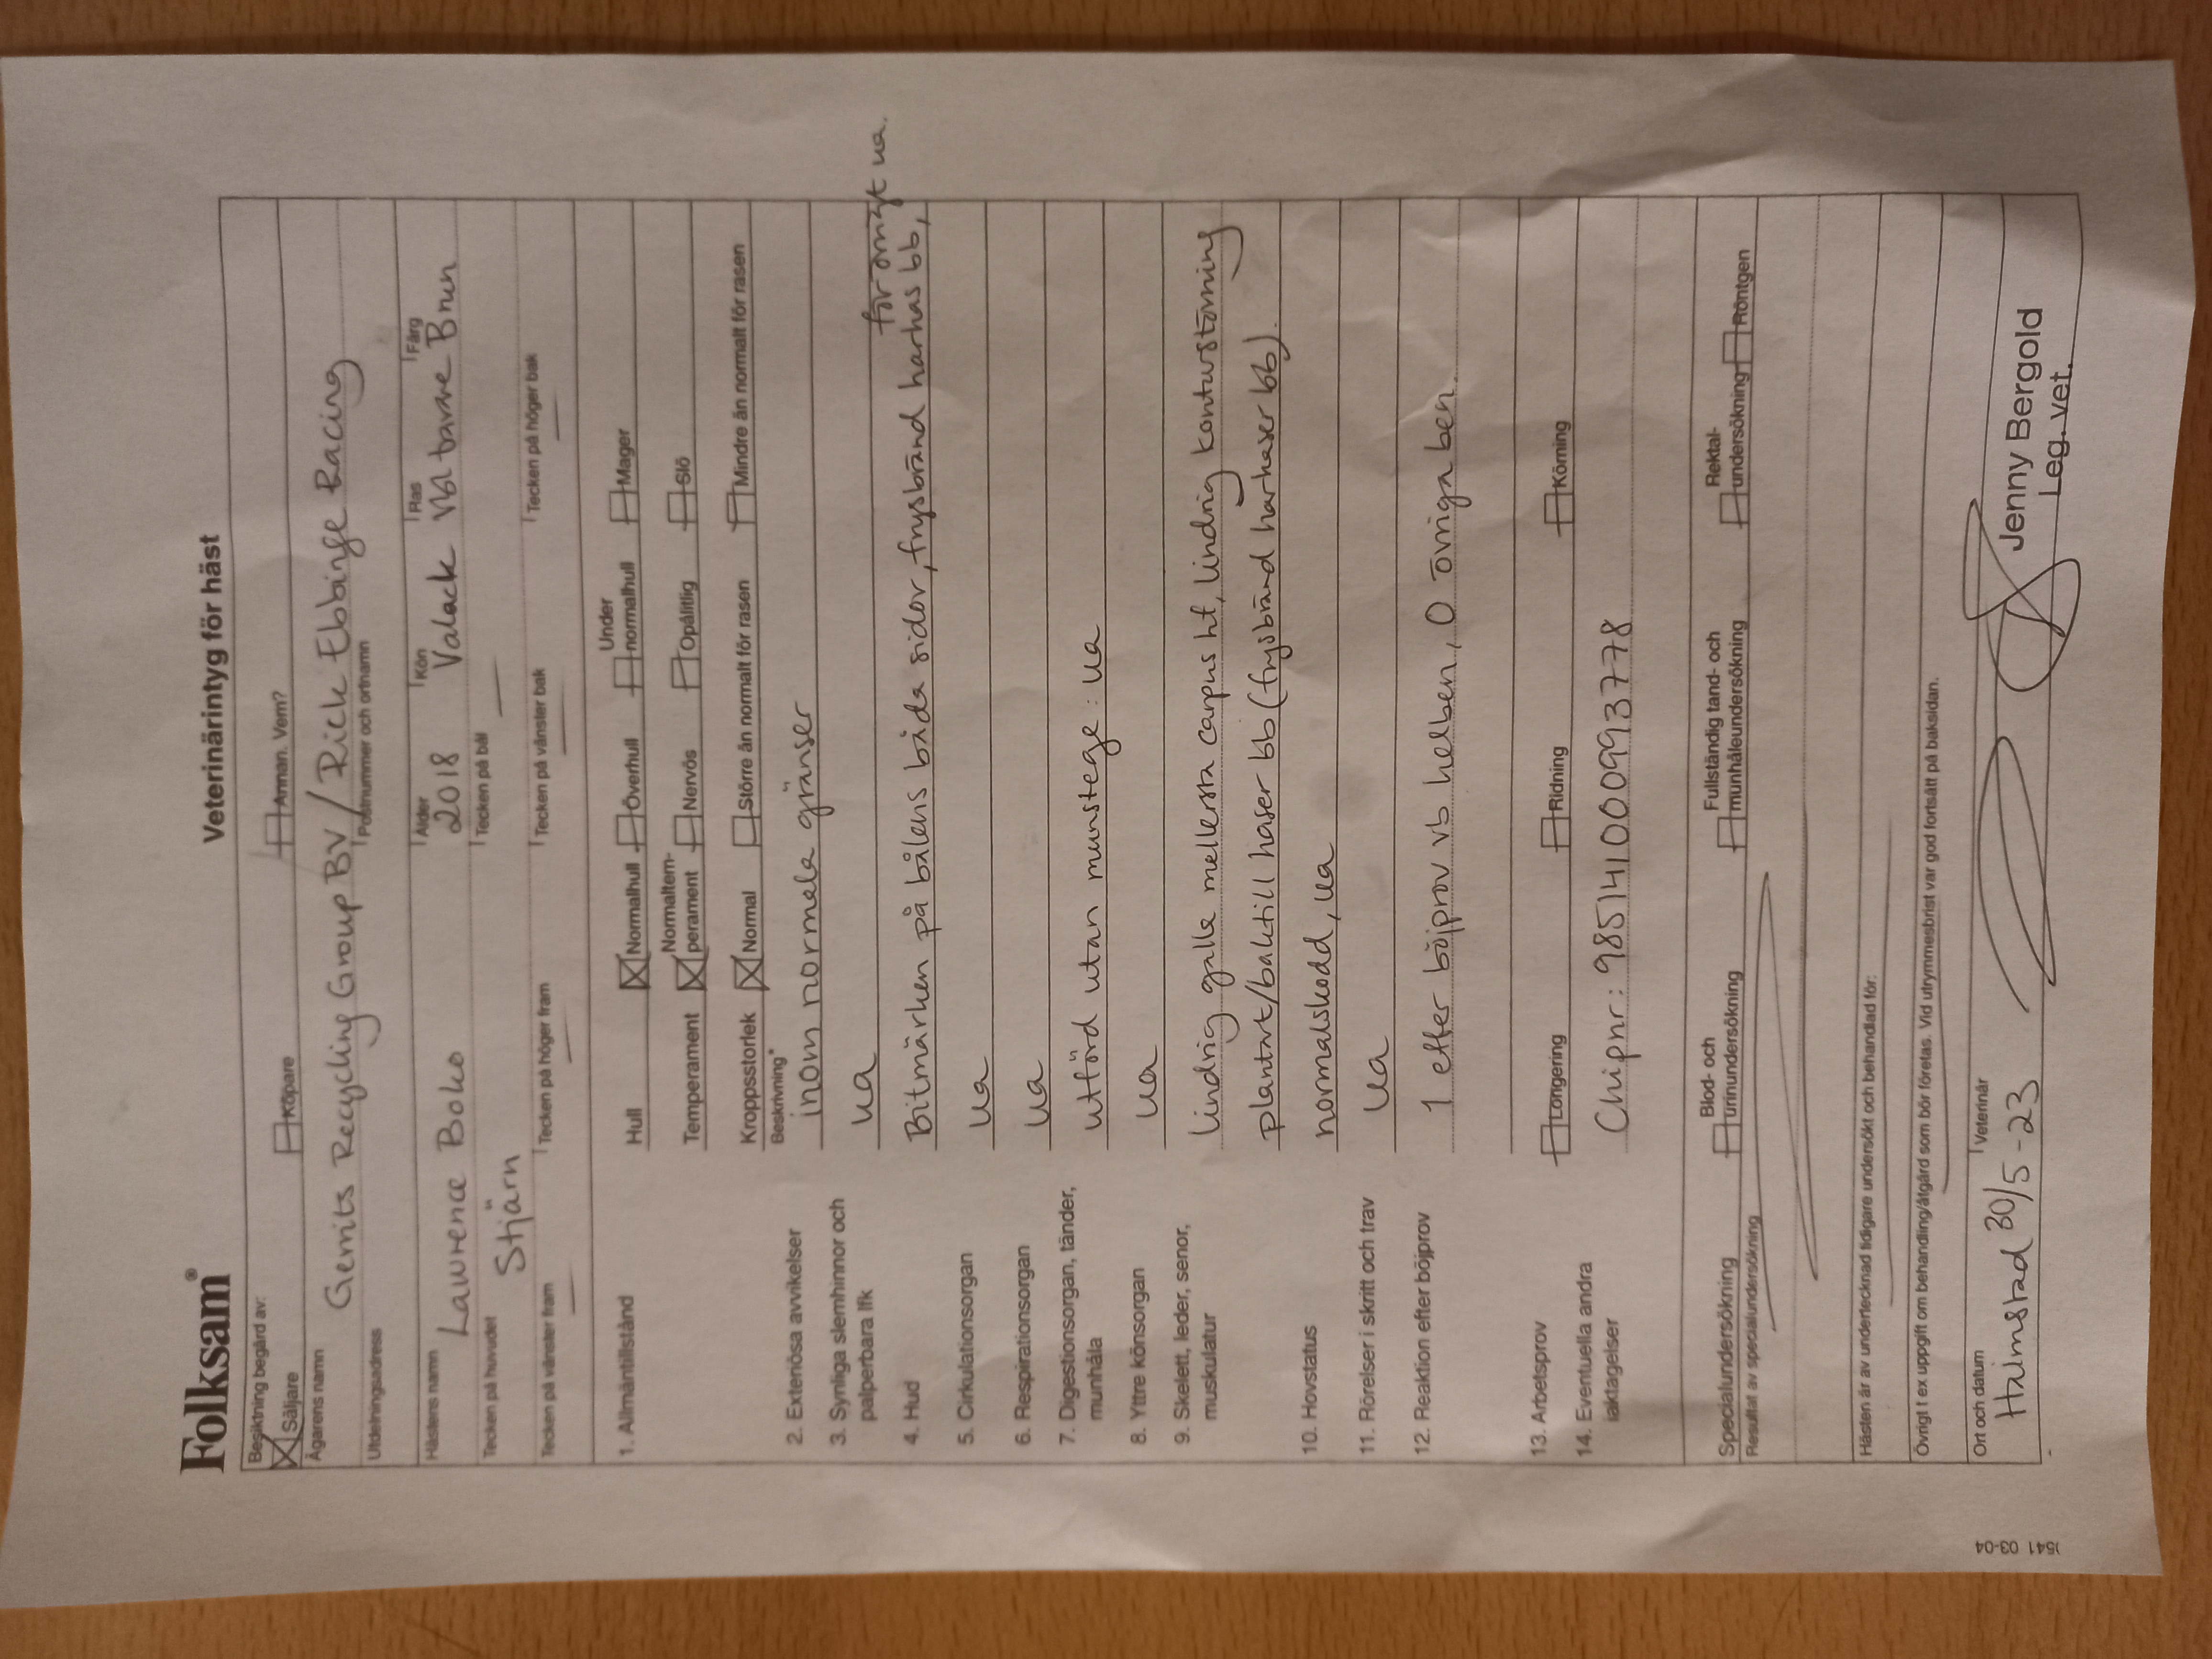 Folksam®
Veterinärintyg för häst
Besiktning begärd av:
Säljare Köpare Annan. Vem?
Ägarens namn
Gerrits Recycling Group BV / Rick Ebbinge Racing
Utdelningsadress Postnummer och ortnamn
Hästens namn Ålder Kön Ras Färg
Lawrence Boko 2018 Valack Vbl travare Brun
Tecken på huvudet Tecken på bål
Stjärn
Tecken på vänster fram Tecken på höger fram Tecken på vänster bak Tecken på höger bak
1. Allmäntillstånd Hull Normalhull Överhull Under normalhull Mager
Temperament Normaltem-perament Nervös Opålitlig Slö
Kroppsstorlek Normal Större än normalt för rasen Mindre än normalt för rasen
Beskrivning*
2. Exteriösa avvikelser inom normala gränser
3. Synliga slemhinnor och palperbara lfk ua
för övrigt ua.
4. Hud Bitmärken på bålens båda sidor, frysbränd harhas bb,
5. Cirkulationsorgan ua
6. Respirationsorgan ua
7. Digestionsorgan, tänder, munhåla utförd utan munstege: ua
8. Yttre könsorgan ua
9. Skelett, leder, senor, muskulatur lindrig galle mellersta carpus ht, lindrig konturstörning
plantart/baktill haser bb (frysbränd harhaser bb).
10. Hovstatus normalskodd, ua
11. Rörelser i skritt och trav ua
12. Reaktion efter böjprov 1 efter böjprov vb helben, 0 övriga ben.
13. Arbetsprov Longering Ridning Körning
14. Eventuella andra iakttagelser Chipnr: 985141000993778
Specialundersökning Blod- och urinundersökning Fullständig tand- och munhåleundersökning Rektal-undersökning Röntgen
Resultat av specialundersökning
Hästen är av undertecknad tidigare undersökt och behandlad för:
Övrigt t ex uppgift om behandling/åtgärd som bör företas. Vid utrymmesbrist var god fortsätt på baksidan.
Ort och datum Veterinär
Halmstad 30/5-23
Jenny Bergold
Leg. vet.
1541 03-04